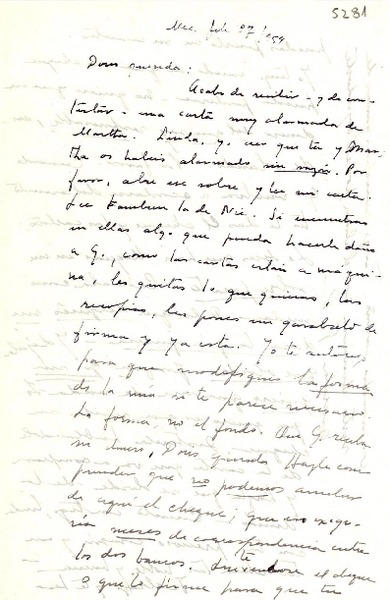 5281
Mex. feb 27 1954
Doris querida:
Acabo de recibir - y de con-
testar - una carta muy alarmada de
Martha. Linda, yo creo que tú y Mar-
tha os habéis alarmado sin razón. Por
favor, abre ese sobre y lee mi carta.
Lee también la de Nic. Si encuentras
en ellas algo que pueda hacerle daño
a G., como las cartas están a máqui-
na, les quitas lo que quieras, las
recopias, les pones un garabato de
firma y ya está. Yo te autorizo
para que modifiques la forma
de la mía si te parece necesario.
La forma, no el fondo. Que G. reciba
su dinero, Doris querida. Hazle com-
prender que no podemos
de aquí el cheque; que eso exige-
ría meses de correspondencia entre
los dos bancos. te el cheque
o que lo firme para que tú